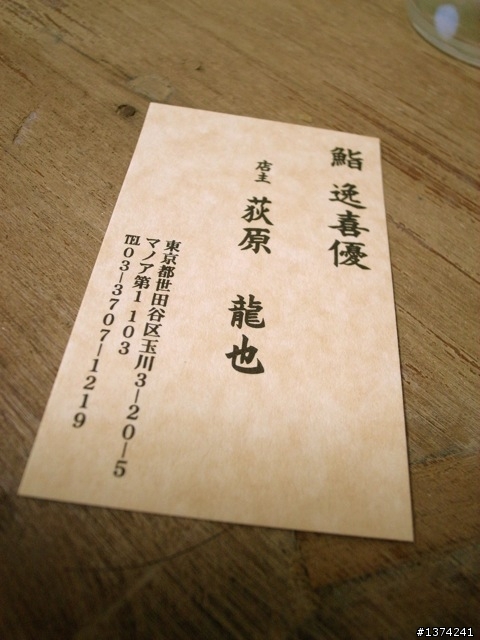 鮨 逸喜優
店主 荻原 龍也
東京都世田谷区玉川3-20-5
マノア第1 103
TEL 03-3707-1219
#1374241